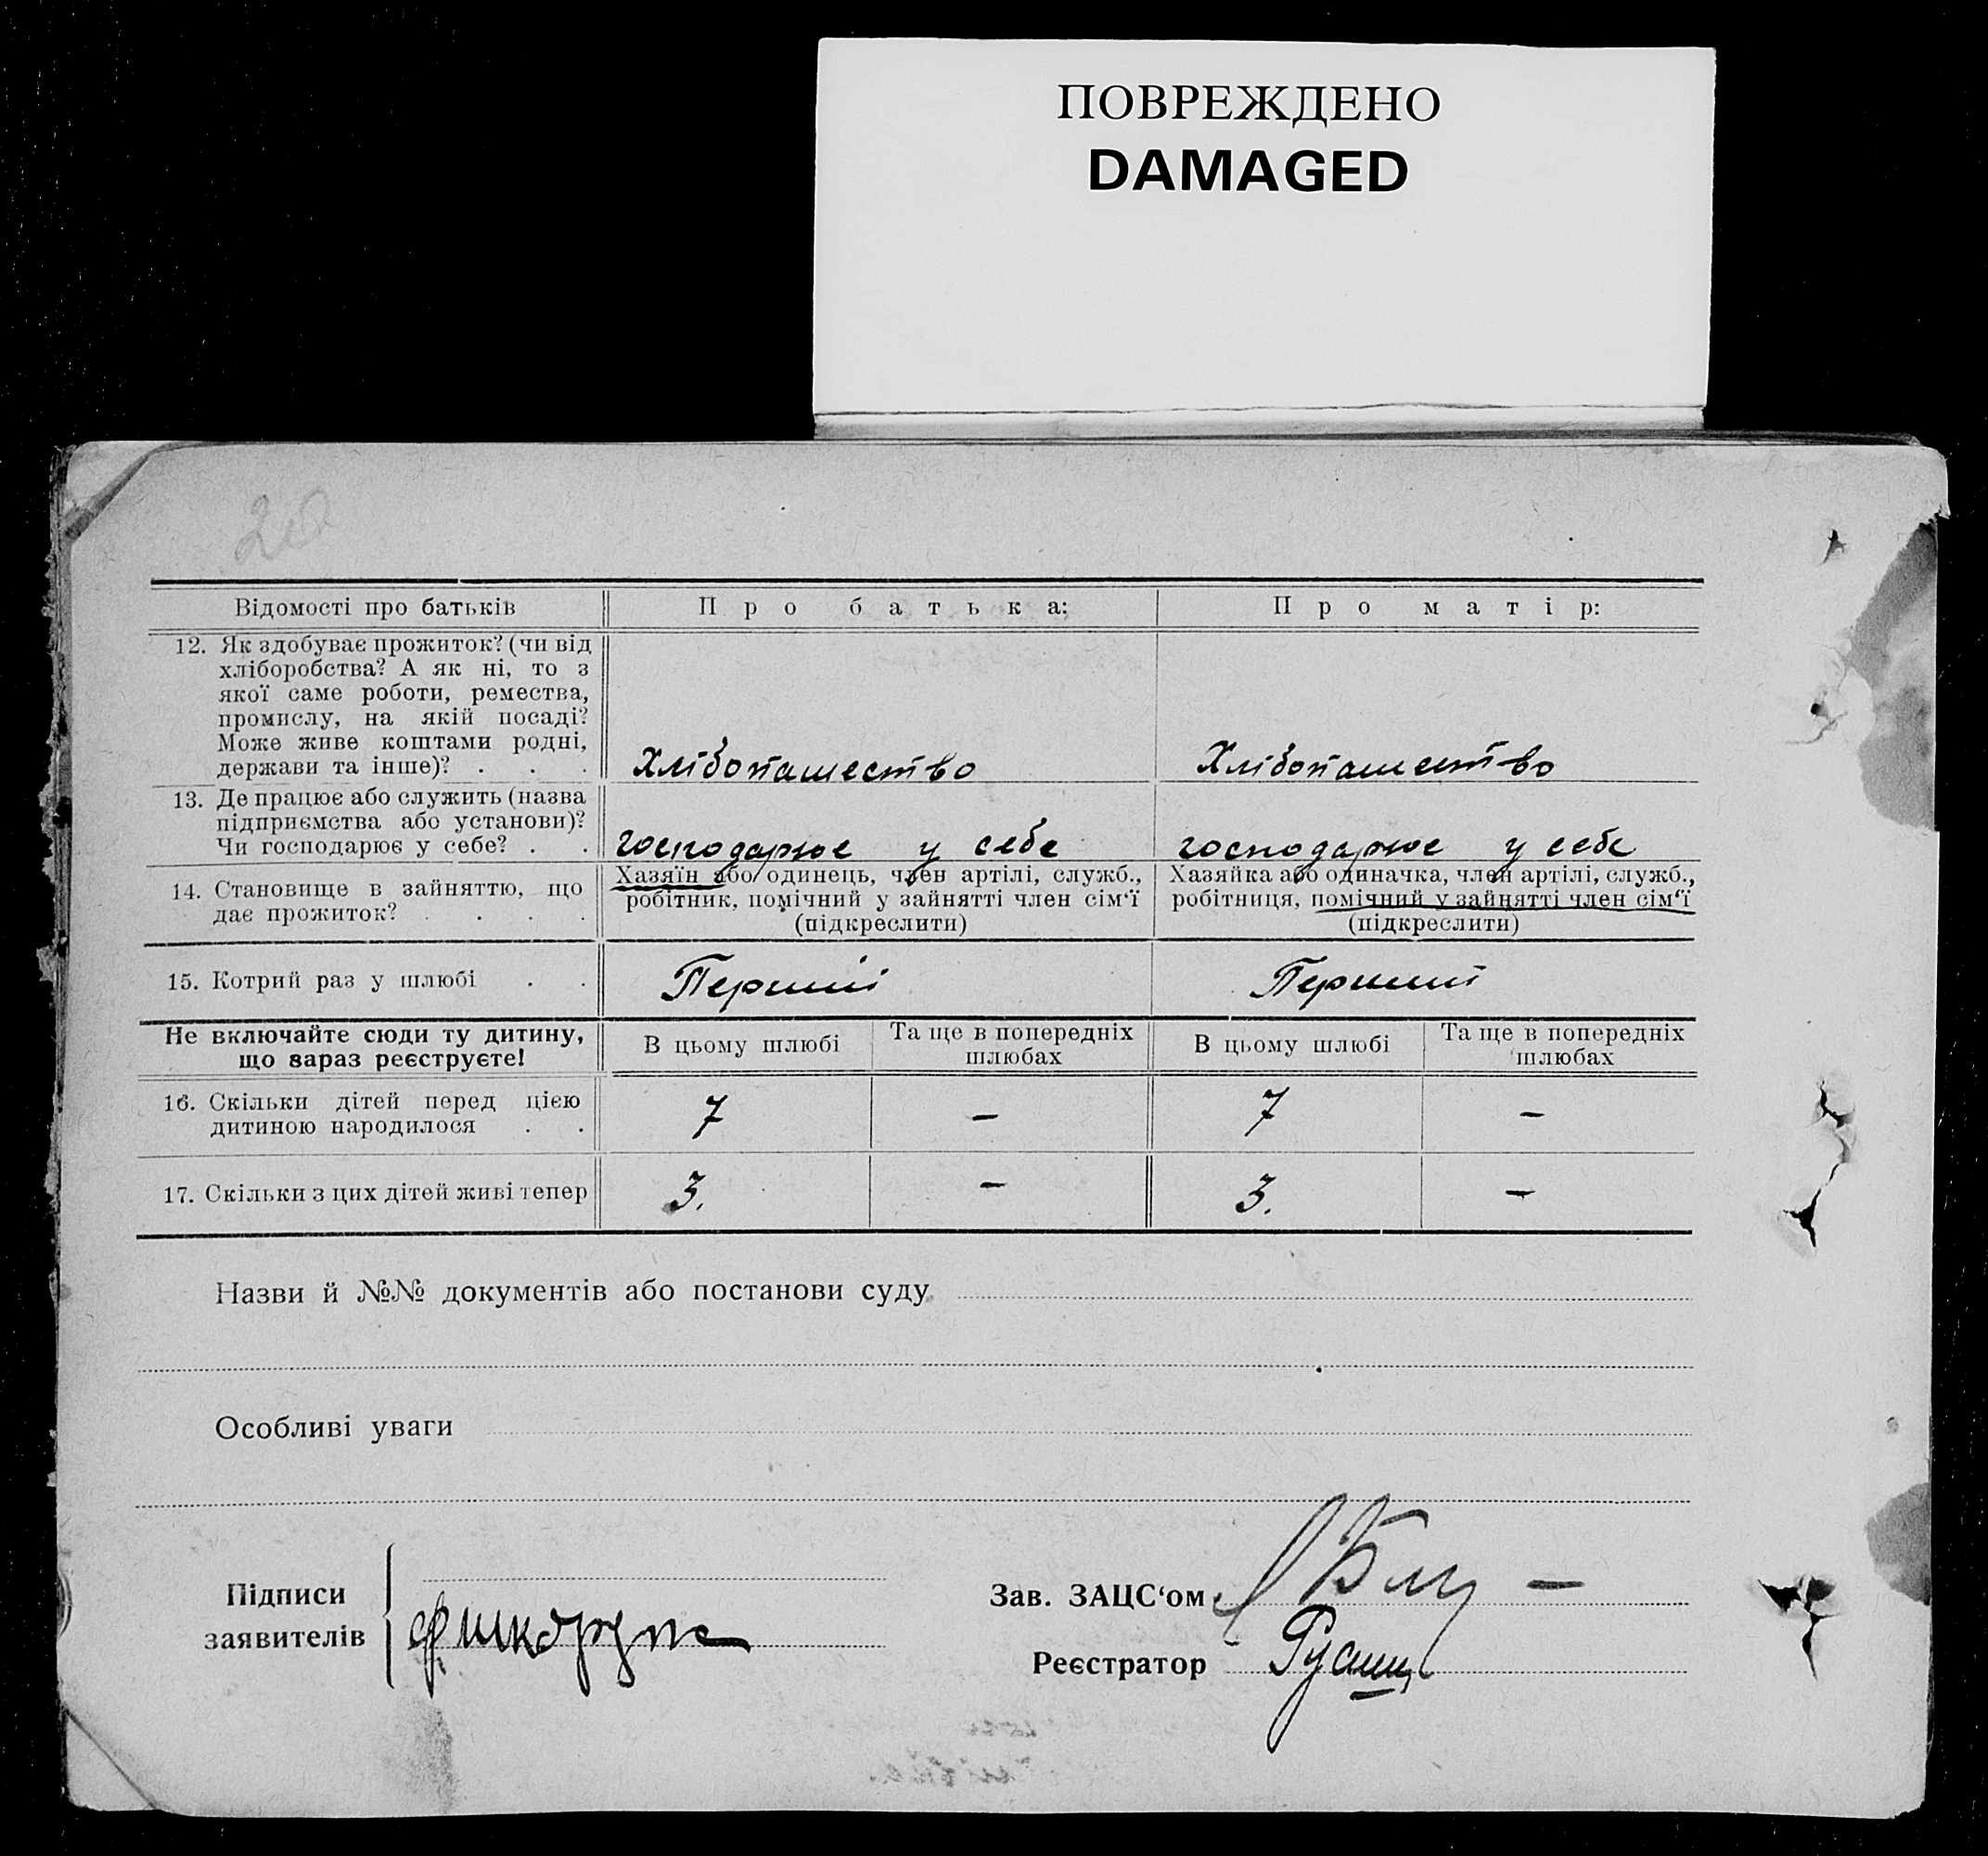 ПОВРЕЖДЕНО
DAMAGED
Відомості про батьків
Про батька:
Про матір:
12. Як здобуває прожиток? (чи від
хліборобства? А як ні, то з
якої саме роботи, ремества,
промислу, на якій посаді?
Може живе коштами родні,
держави та інше)? . . .
Хлібопашество
Хлібопашество
13. Де працює або служить (назва
підприємства або установи)?
Чи господарює у себе? . .
господарює у себе
господарює у себе
14. Становище в зайняттю, що
дає прожиток? . . . .
Хазяїн або одинець, член артілі, служб.,
робітник, помічний у зайнятті член сім‘ї
(підкреслити)
Хазяйка або одиначка, член артілі, служб.,
робітниця, помічний у зайнятті член сім‘ї
(підкреслити)
15. Котрий раз у шлюбі . .
Перший
Перший
Не включайте сюди ту дитину,
що зараз реєструєте!
В цьому шлюбі
Та ще в попередніх
шлюбах
В цьому шлюбі
Та ще в попередніх
шлюбах
16. Скільки дітей перед цією
дитиною народилося . .
7
—
7
—
17. Скільки з цих дітей живі тепер
3.
—
3.
—
Назви й №№ документів або постанови суду
Особливі уваги
Підписи
заявителів
Зав. ЗАЦС‘ом
Реєстратор